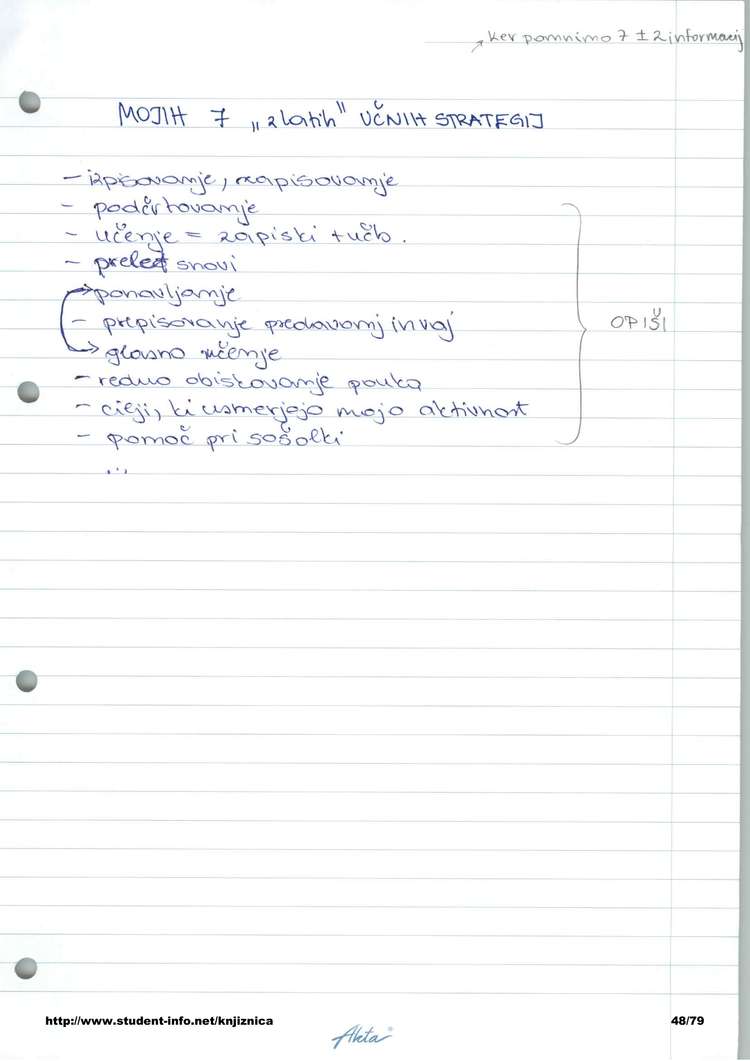 ker pomnimo 7 ± 2 informacij
MOJIH 7 „zlatih" UČNIH STRATEGIJ
- izpisovanje, zapisovanje
- podčrtovanje
- učenje = zapiski + učb.
- preled snovi
ponavljanje
- prepisovanje predavanj in vaj
glasno učenje
- redno obiskovanje pouka
- cilji, ki usmerjajo mojo aktivnost
- pomoč pri sošolki
...
OPIŠI
http://www.student-info.net/knjiznica
48/79
Akta